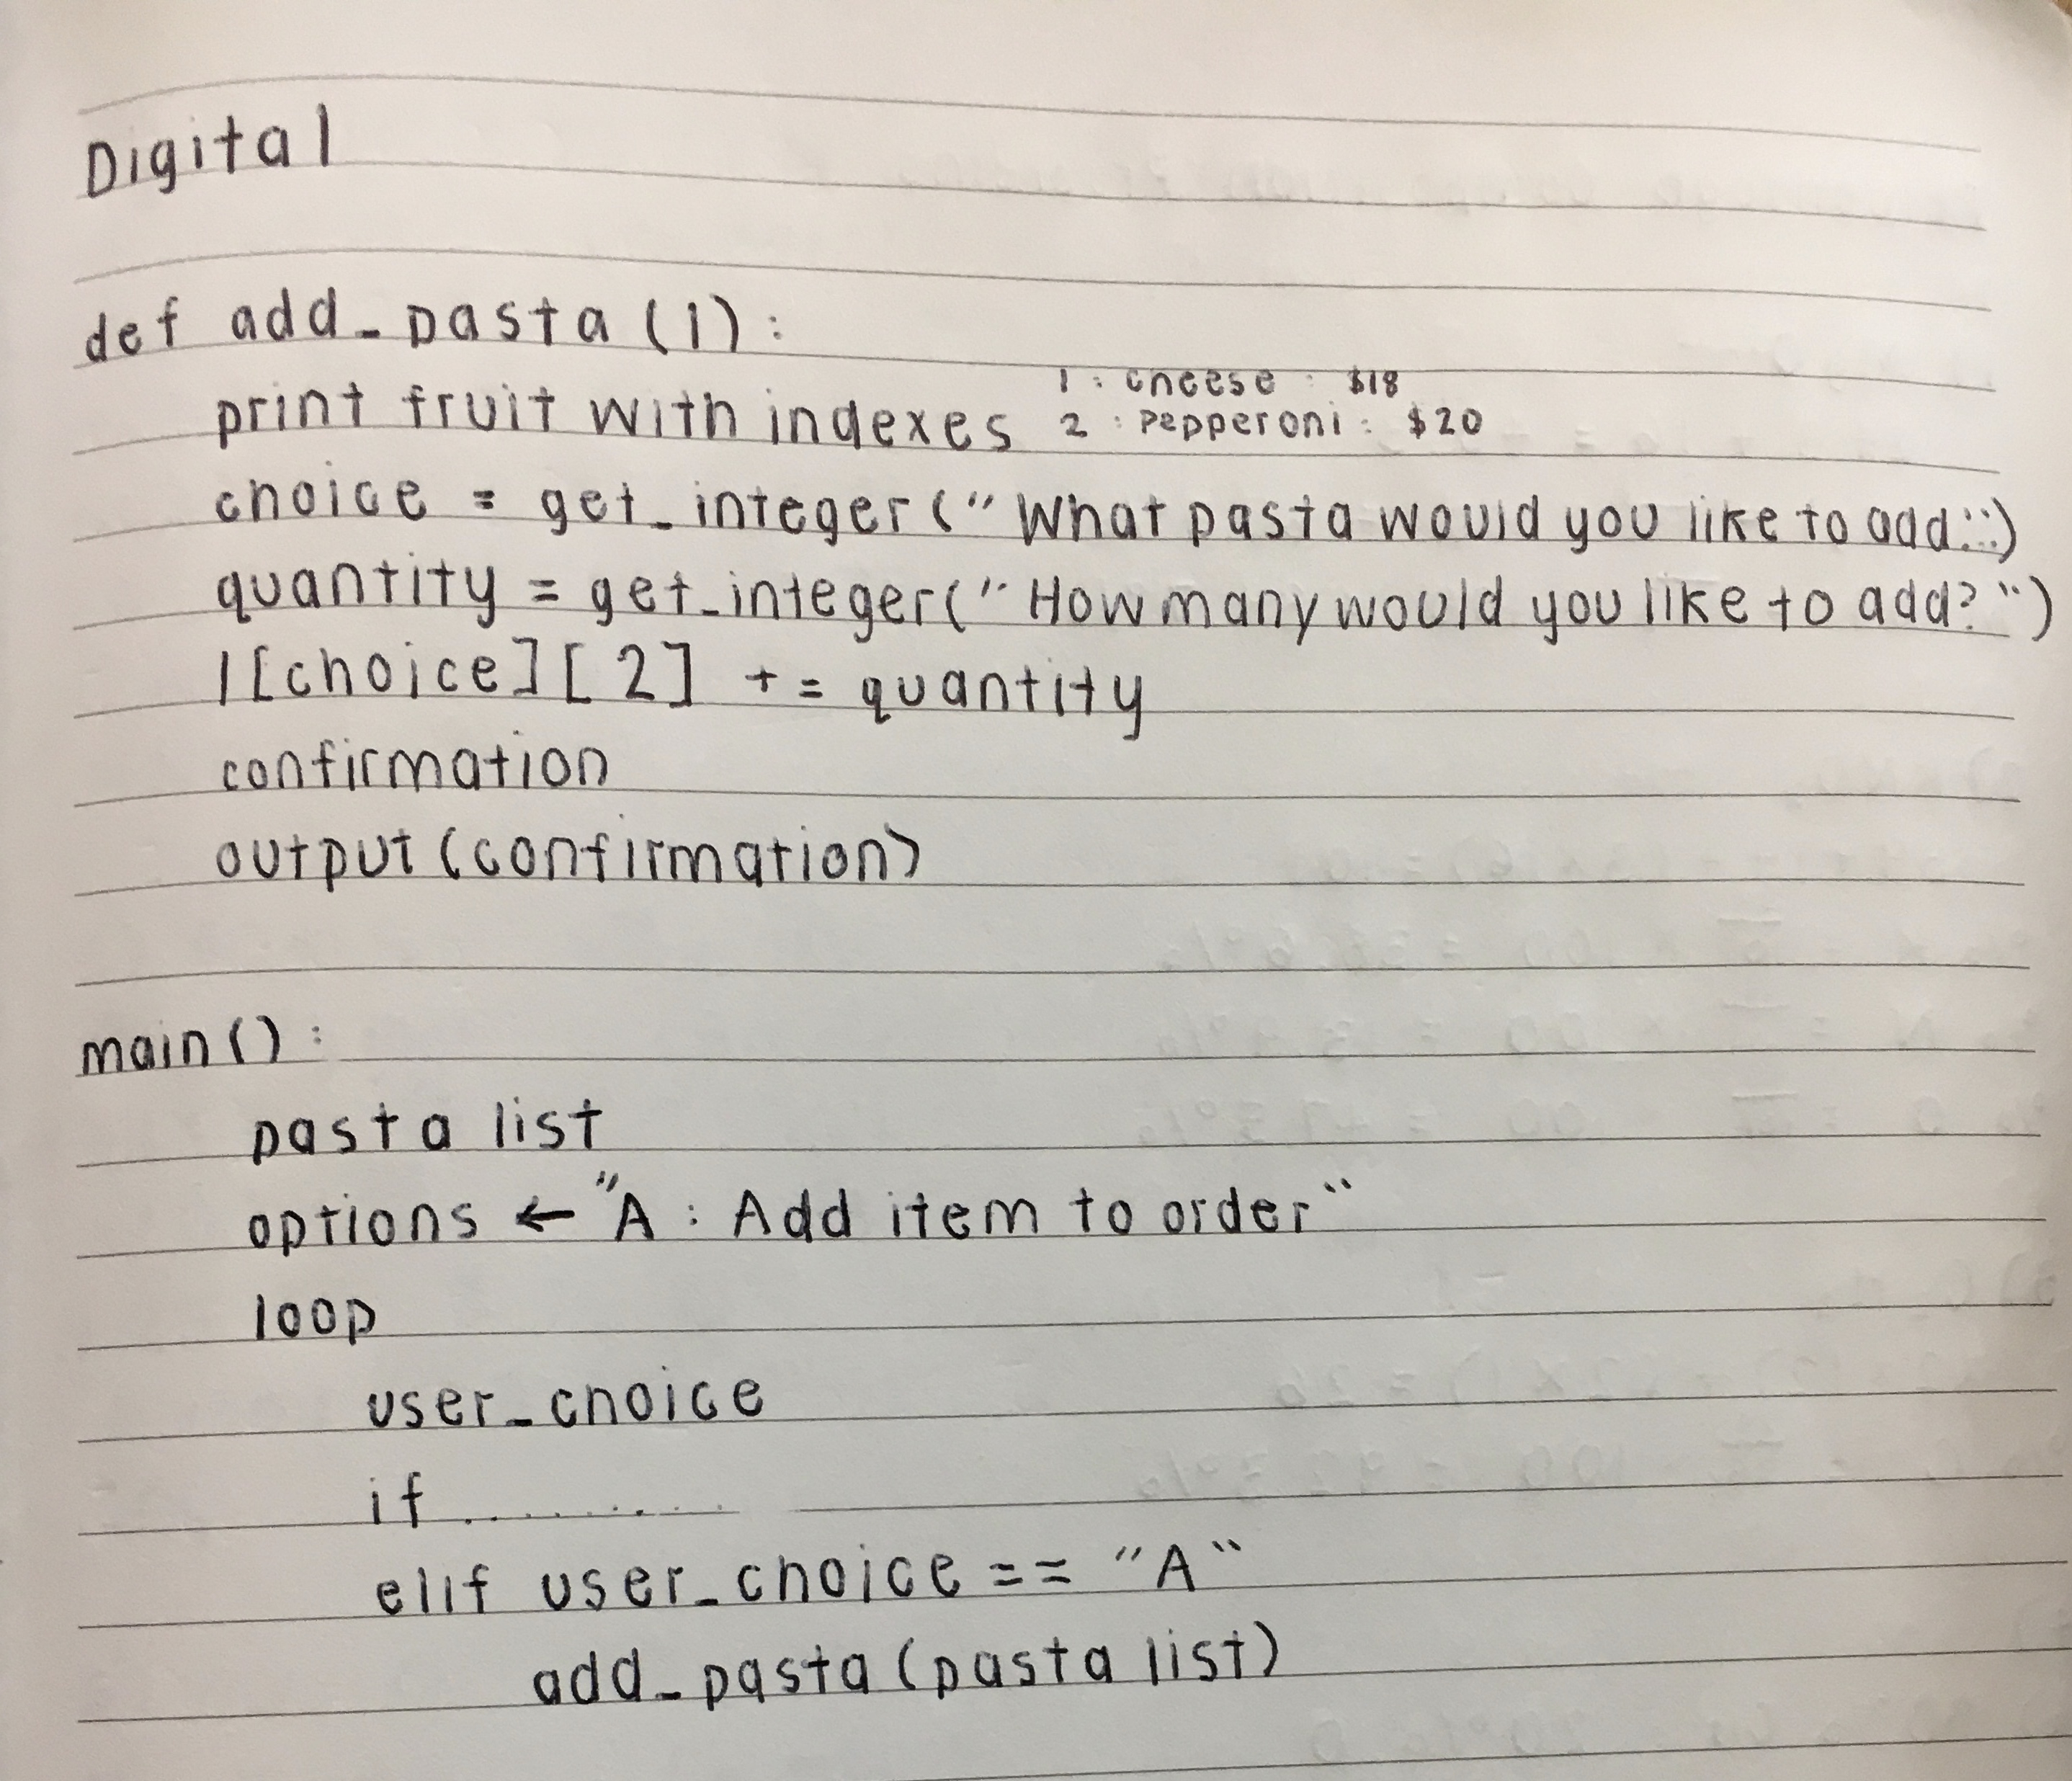 Digital
def add_pasta (l):
print fruit with indexes
1 : cheese : $18
2 : Pepperoni : $20
choice = get_integer ("What pasta would you like to add:")
quantity = get_integer("How many would you like to add?")
l[choice][2] += quantity
confirmation
output (confirmation)
main() :
pasta list
options ← "A : Add item to order"
loop
user_choice
if .........
elif user_choice == "A"
add_pasta (pasta list)